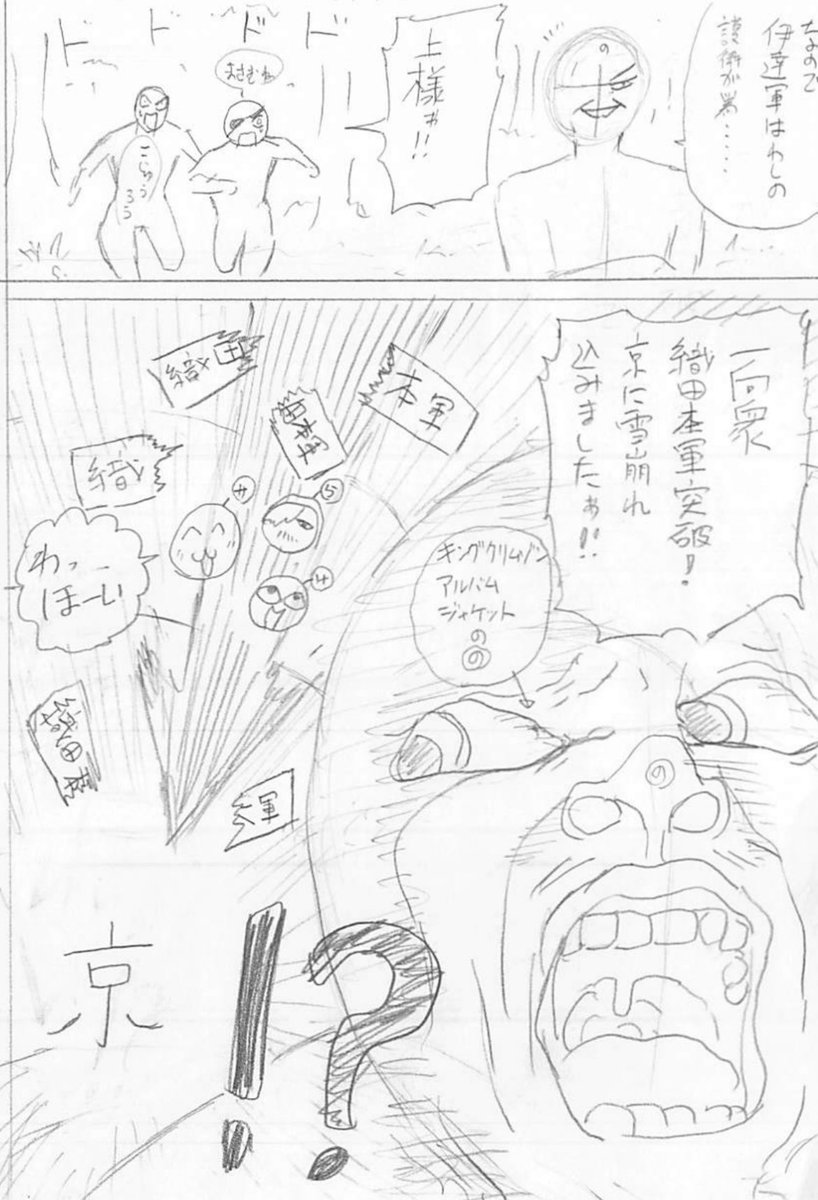 なので
伊達軍はわしの
護衛が嵩……
の
上様ぁ!!
ドドドド
まさむね
こじゅう
ろう
一向衆
織田本軍突破!
京に雪崩れ
込みましたぁ!!
本軍
田本軍
織田
織
キングクリムゾン
アルバム
ジャケット
の
の
5
サ
サ
わっ
ほーい
織田本
軍
の
京
!?